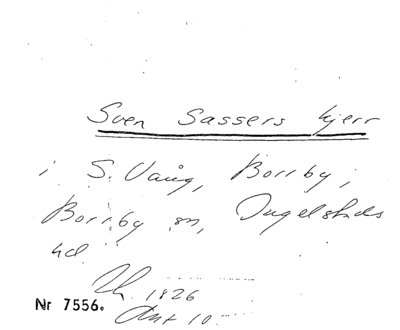 Sven Sassers kjerr
i S. Vång, Borrby,
Borrby sn, Ingelstads
hd
Lh. 1826
Akt 10
Nr 7556.